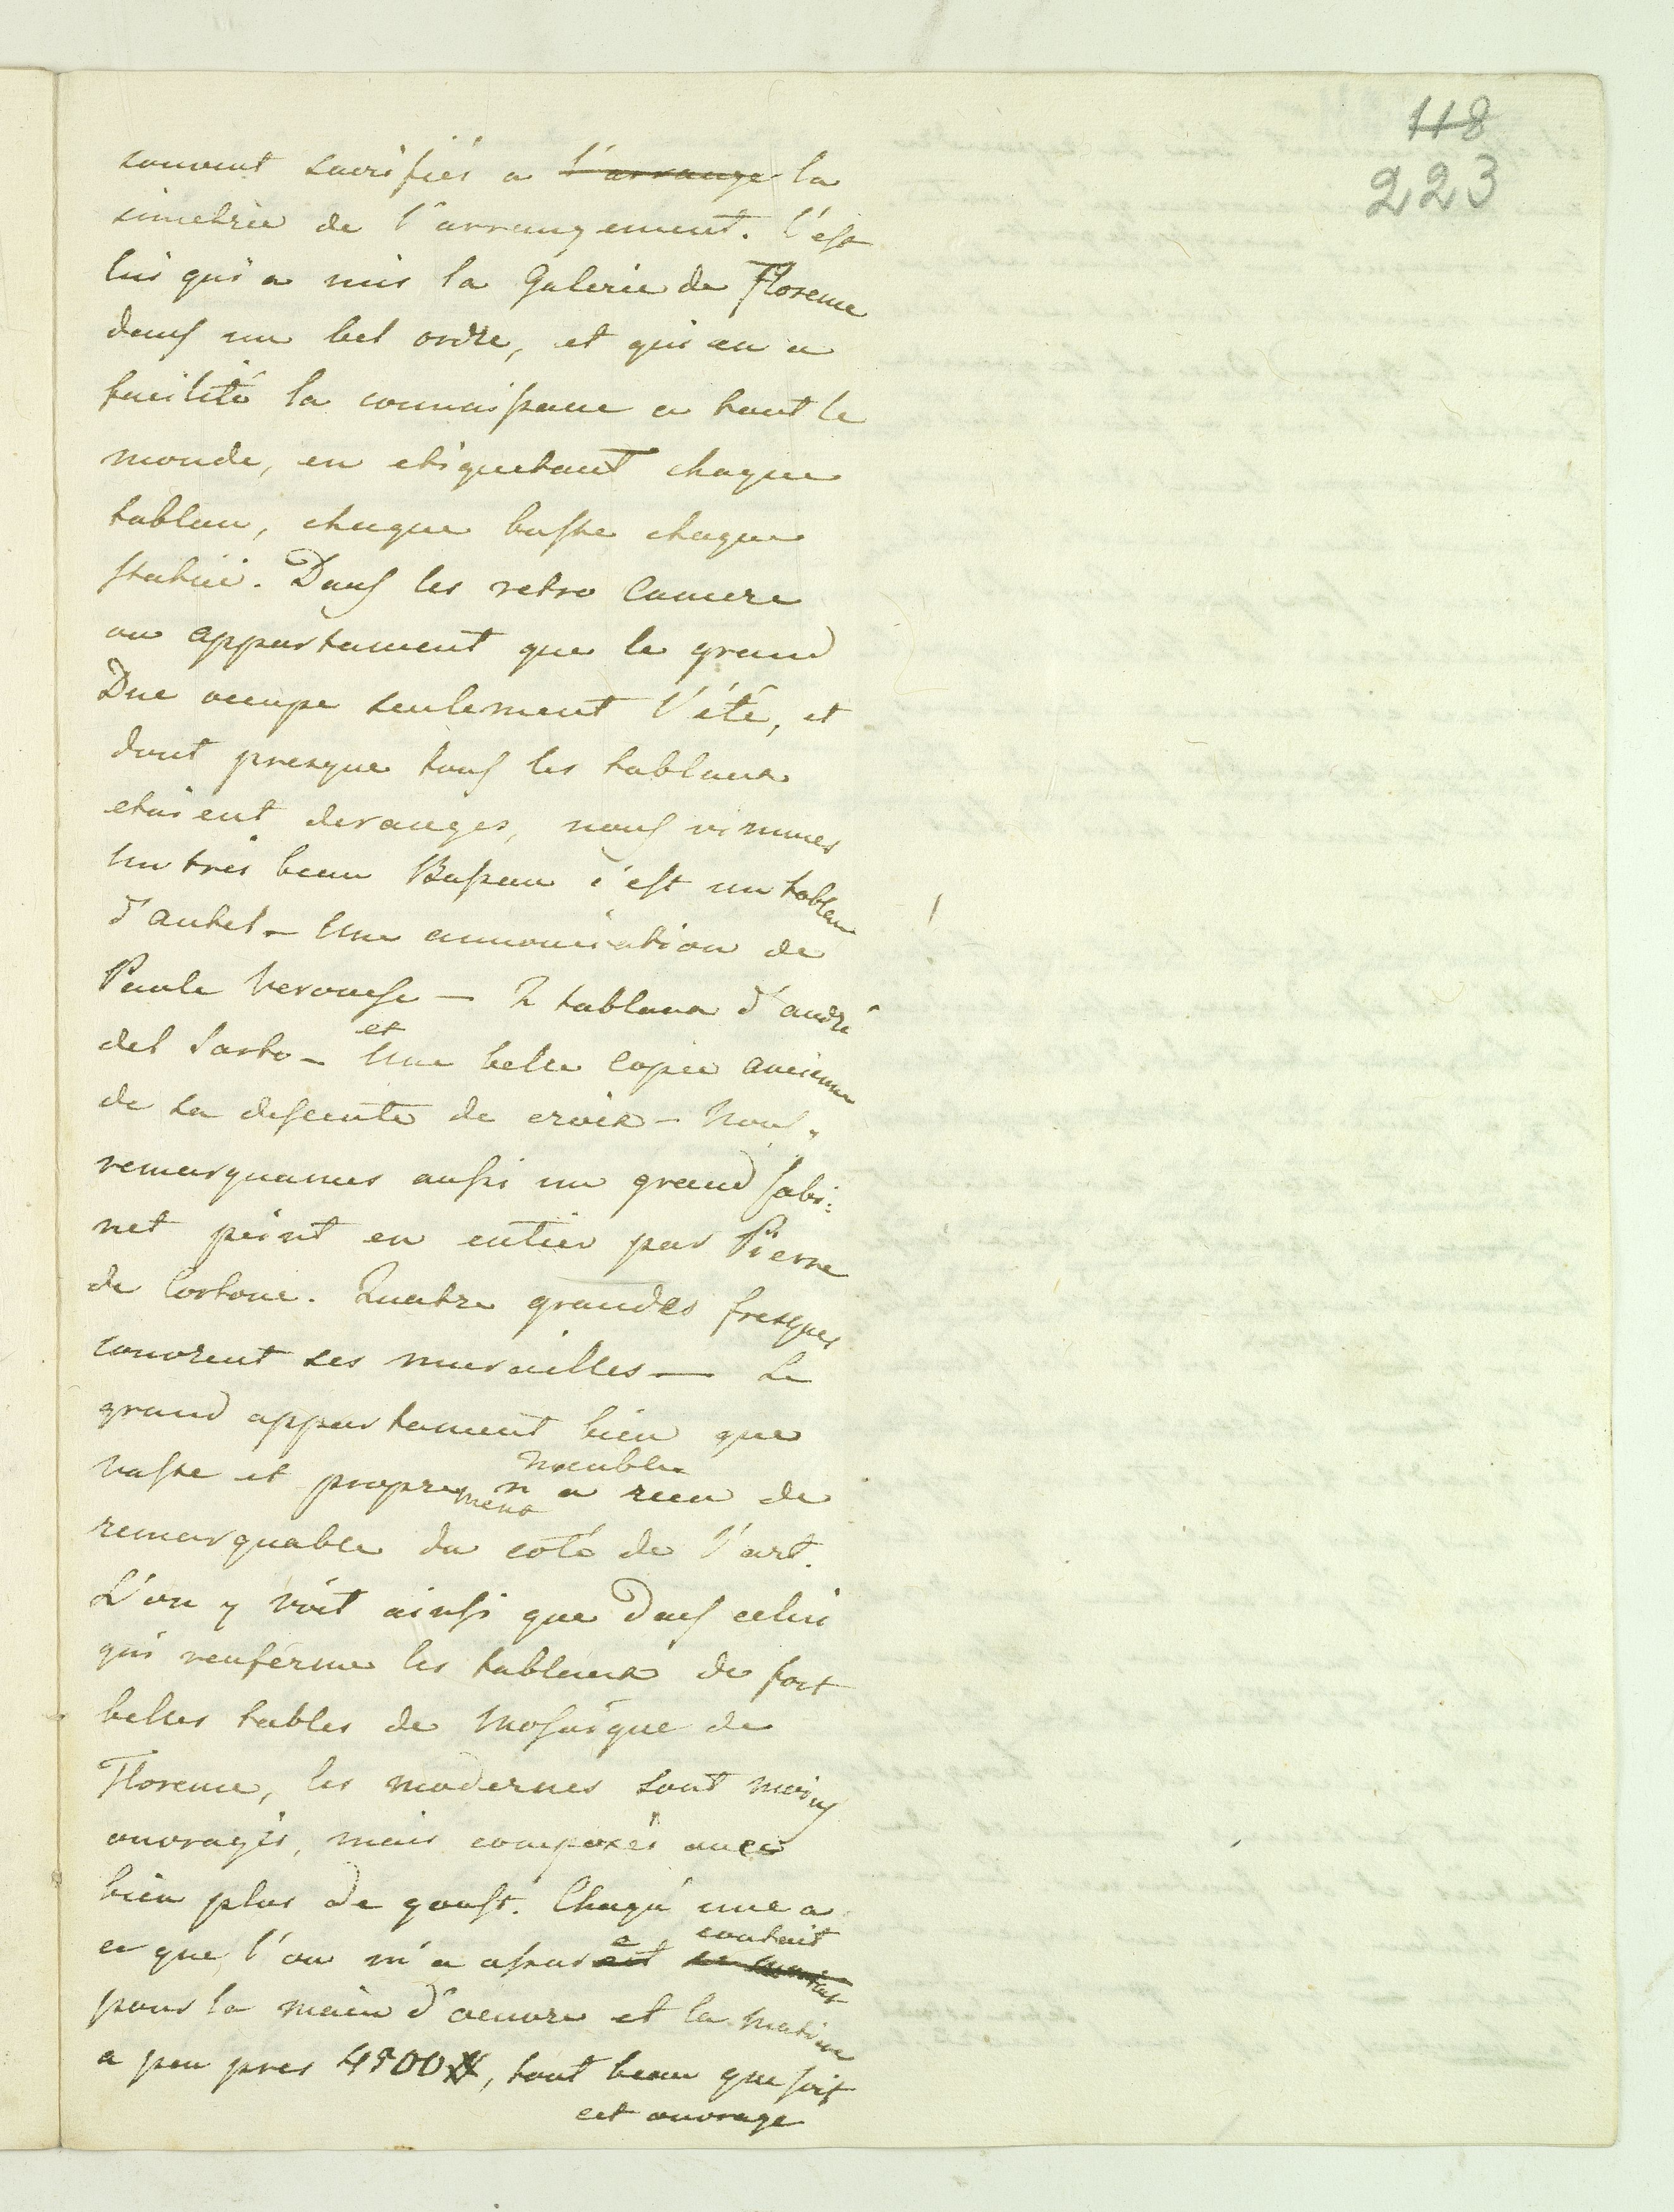 118
223
souvent sacrifiés a l'arrange la
simetrie de l'arrangement. C'est
lui qui a mis la Galerie de Florence
dans un bel ordre, et qui en a
facilité la connaissance a tout le
monde, en etiquetant chaque
tableau, chaque buste chaque
statuë. Dans les retro Camere
ou appartement que le grand
Duc occupe seulement l'été, et
dont presque tous les tableaux
etaient deranges, nous vimmes
un tres beau Bassan c'est un tableau
d'autel – Une annonciation de
Paule Veronese – 2 tableaux d'André
del Sarto – et Une belle copie ancienne
de sa descente de croix – Nous
remarquames aussi un grand Cabi:
net peint en entier par Pierre
de Cortone. Quatre grandes fresques
couvrent ses murailles — Le
grand appartement bien que
vaste et proprement meublé n'a rien de
remarquable du coté de l'art.
L'on y voit ainsi que dans celui
qui renferme les tableaux de fort
belles tables de Mosaique de
Florence, les modernes sont moins
ouvragés, mais composés avec
bien plus de goust. Chaqu'une a
ce que l'on m'a assuré coutait
pour la main d'oeuvre et la matiere
a peu pres 4500 #, tout beau que soit
cet ouvrage